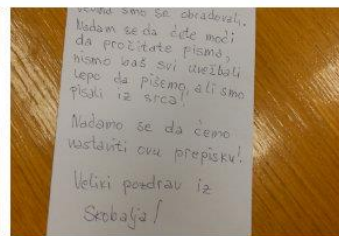 veoma smo se obradovali.
Nadam se da ćete moći
da pročitate pisma,
nismo baš svi uvežbali
lepo da pišemo, ali smo
pisali iz srca!
Nadamo se da ćemo
nastaviti ovu prepisku!
Veliki pozdrav iz
Skobalja!